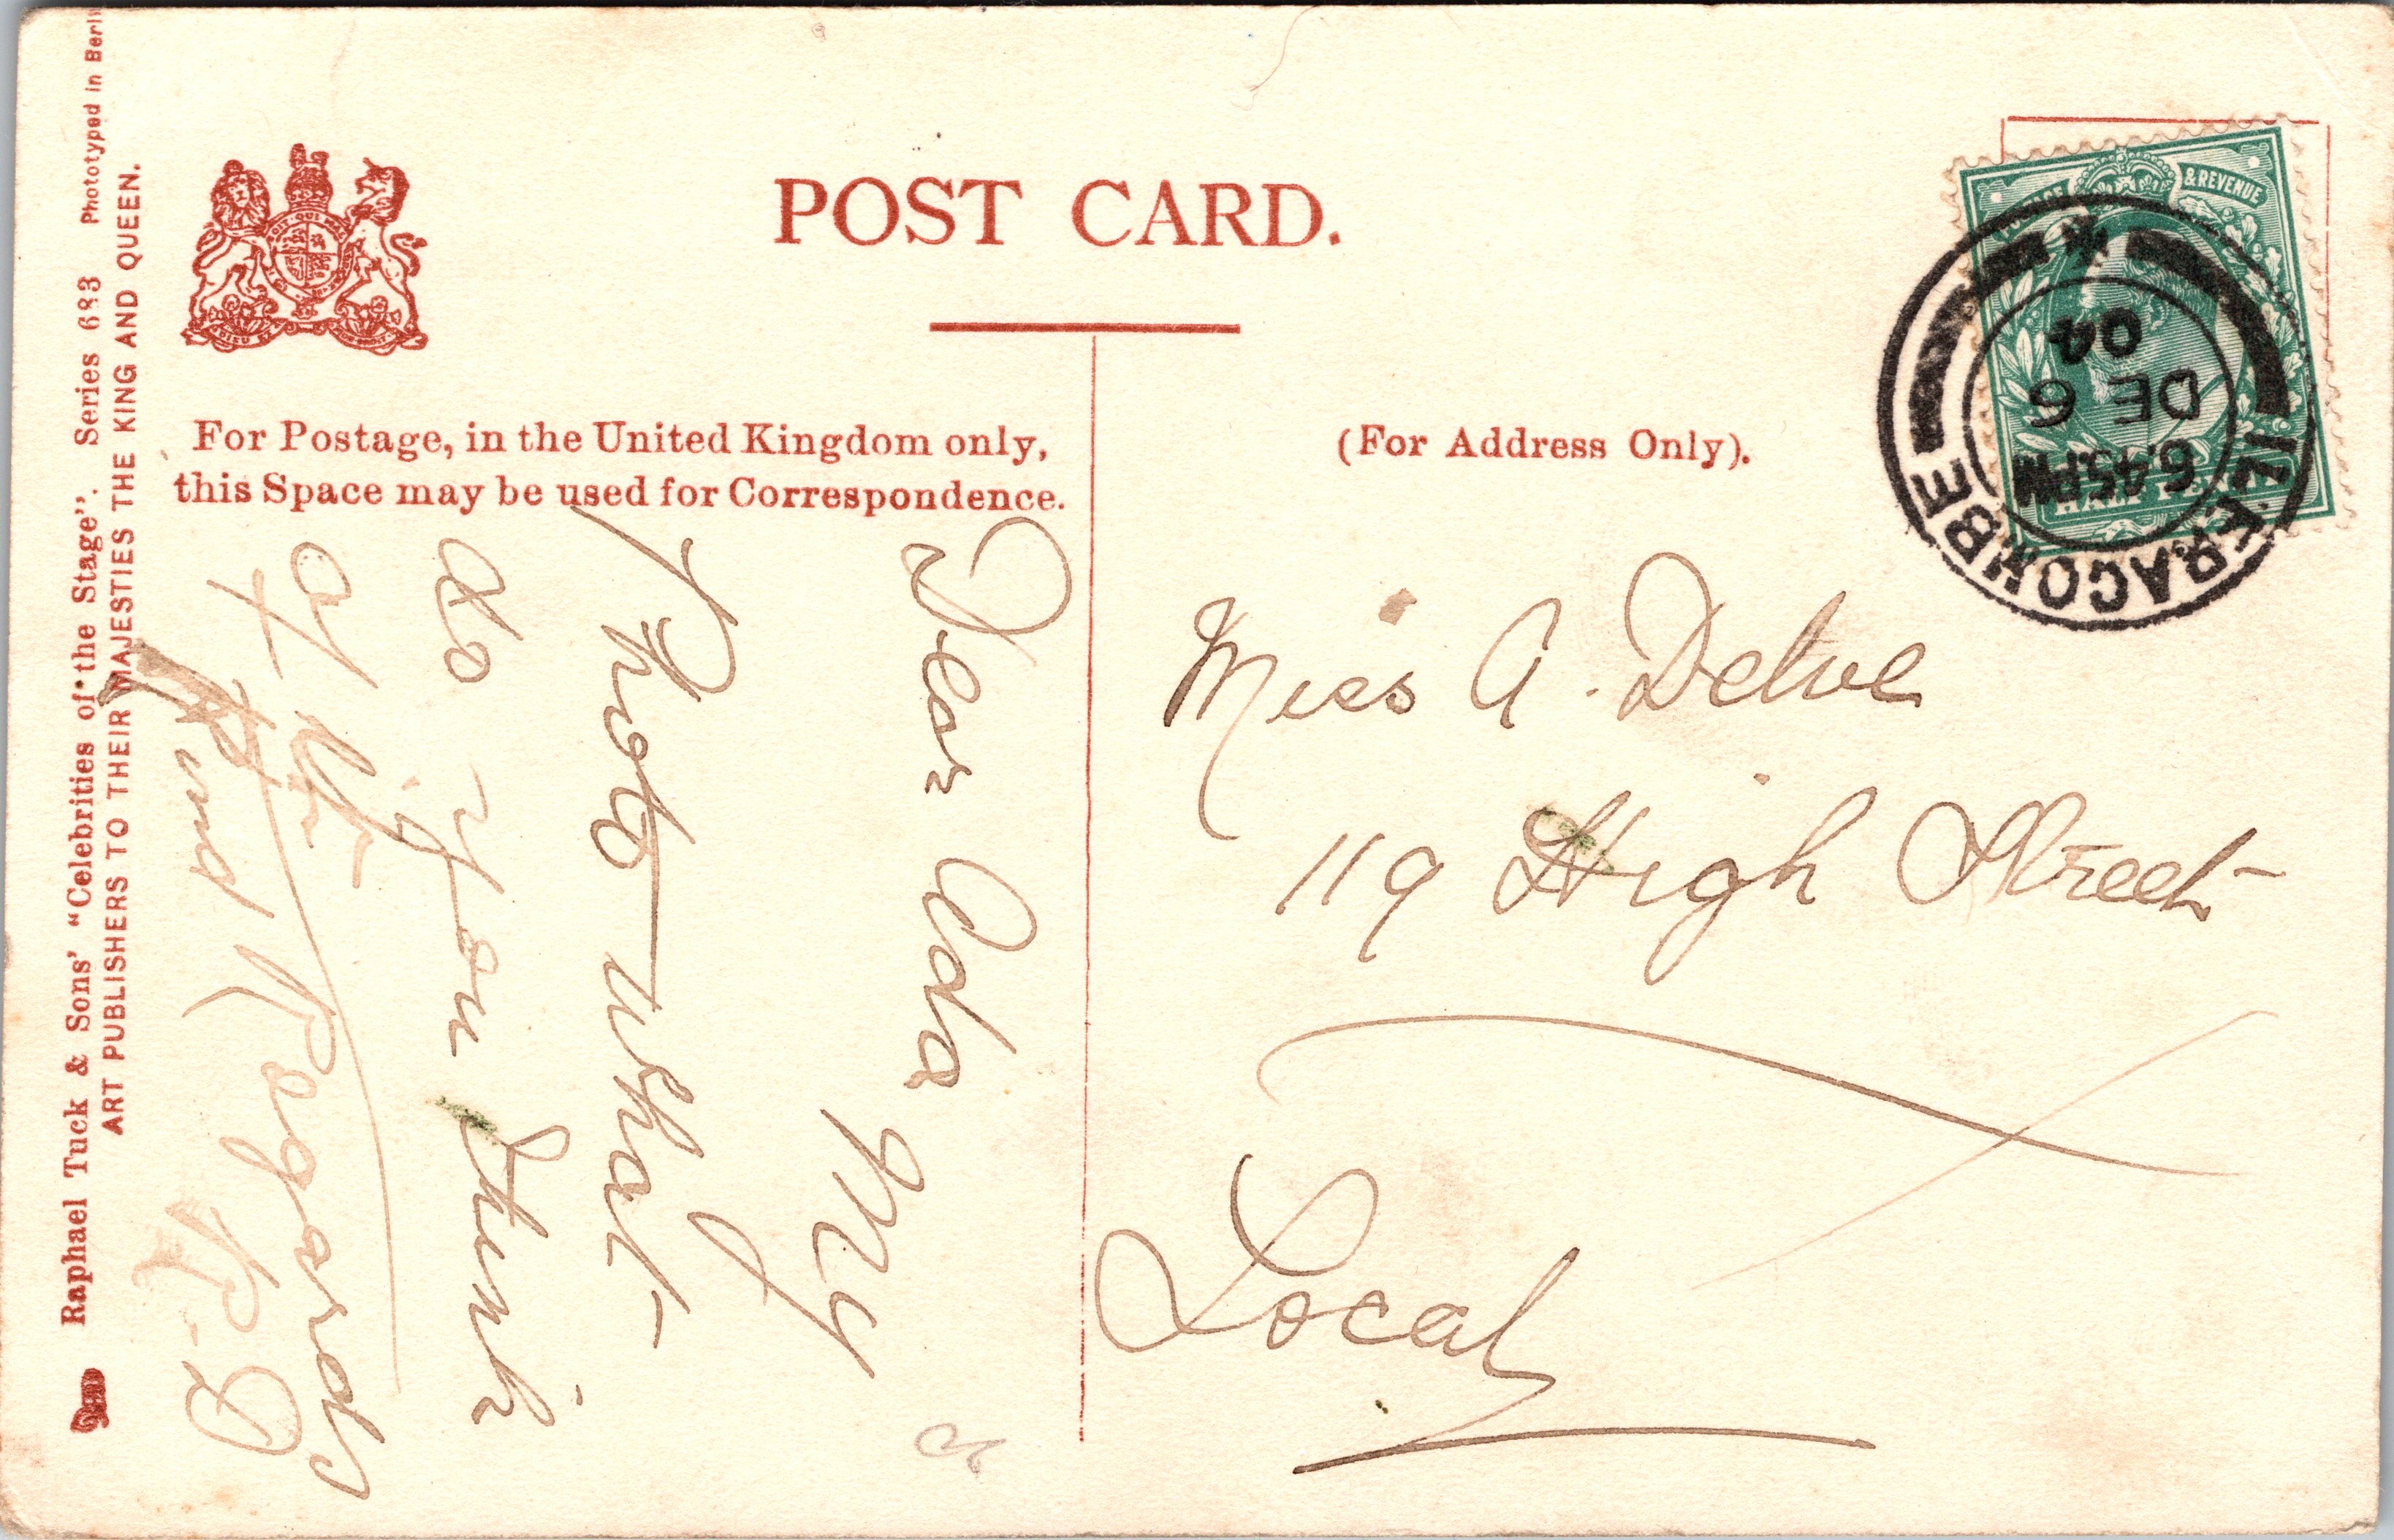 POST CARD.
For Postage, in the United Kingdom only,
this Space may be used for Correspondence.
(For Address Only).
Raphael Tuck & Sons' "Celebrities of the Stage". Series 683 Phototyped in Berlin
ART PUBLISHERS TO THEIR MAJESTIES THE KING AND QUEEN.
& REVENUE
ILFRACOMBE
6.45PM
DE 6
04
Dear Ada My
Photo what
do you think
of it
Kind Regards
Miss A. Delve
119 High Street
Local